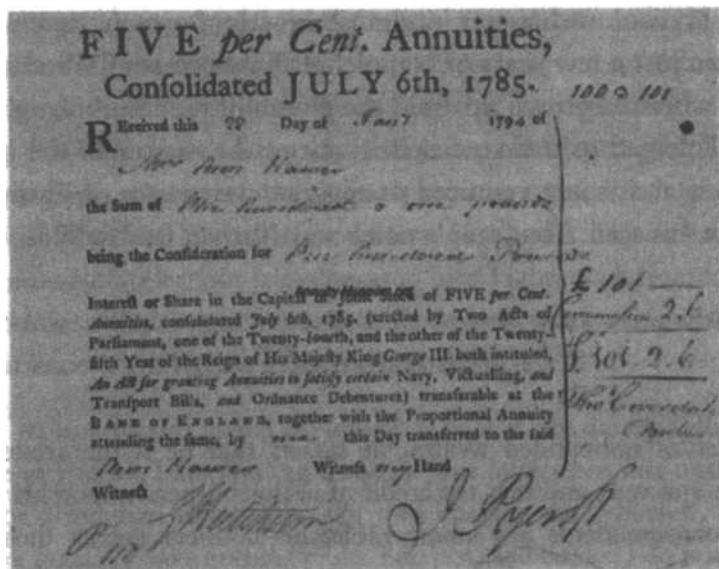 FIVE per Cent. Annuities,
Conſolidated JULY 6th, 1785.
100 @ 101
REceived this 22 Day of Janʸ 1794 of
Mrs Ann Hawes
the Sum of One hundred & one pounds
being the Conſideration for One hundred Pounds
Intereſt or Share in the Capital or Joint Stock of FIVE per Cent.
Annuities, conſolidated July 6th, 1785. (erected by Two Acts of
Parliament, one of the Twenty-fourth, and the other of the Twenty-
fifth Year of the Reign of His Majeſty King George III. both intituled,
An Act for granting Annuities to ſatisfy certain Navy, Victualling, and
Tranſport Bills, and Ordnance Debentures) transferable at the
BANK OF ENGLAND, together with the Proportional Annuity
attending the ſame, by me this Day transferred to the ſaid
Ann Hawes Witneſs my Hand
Witneſs
£ 101
Commiſsion 2.6
£ 101.2.6
Thos Coverdale